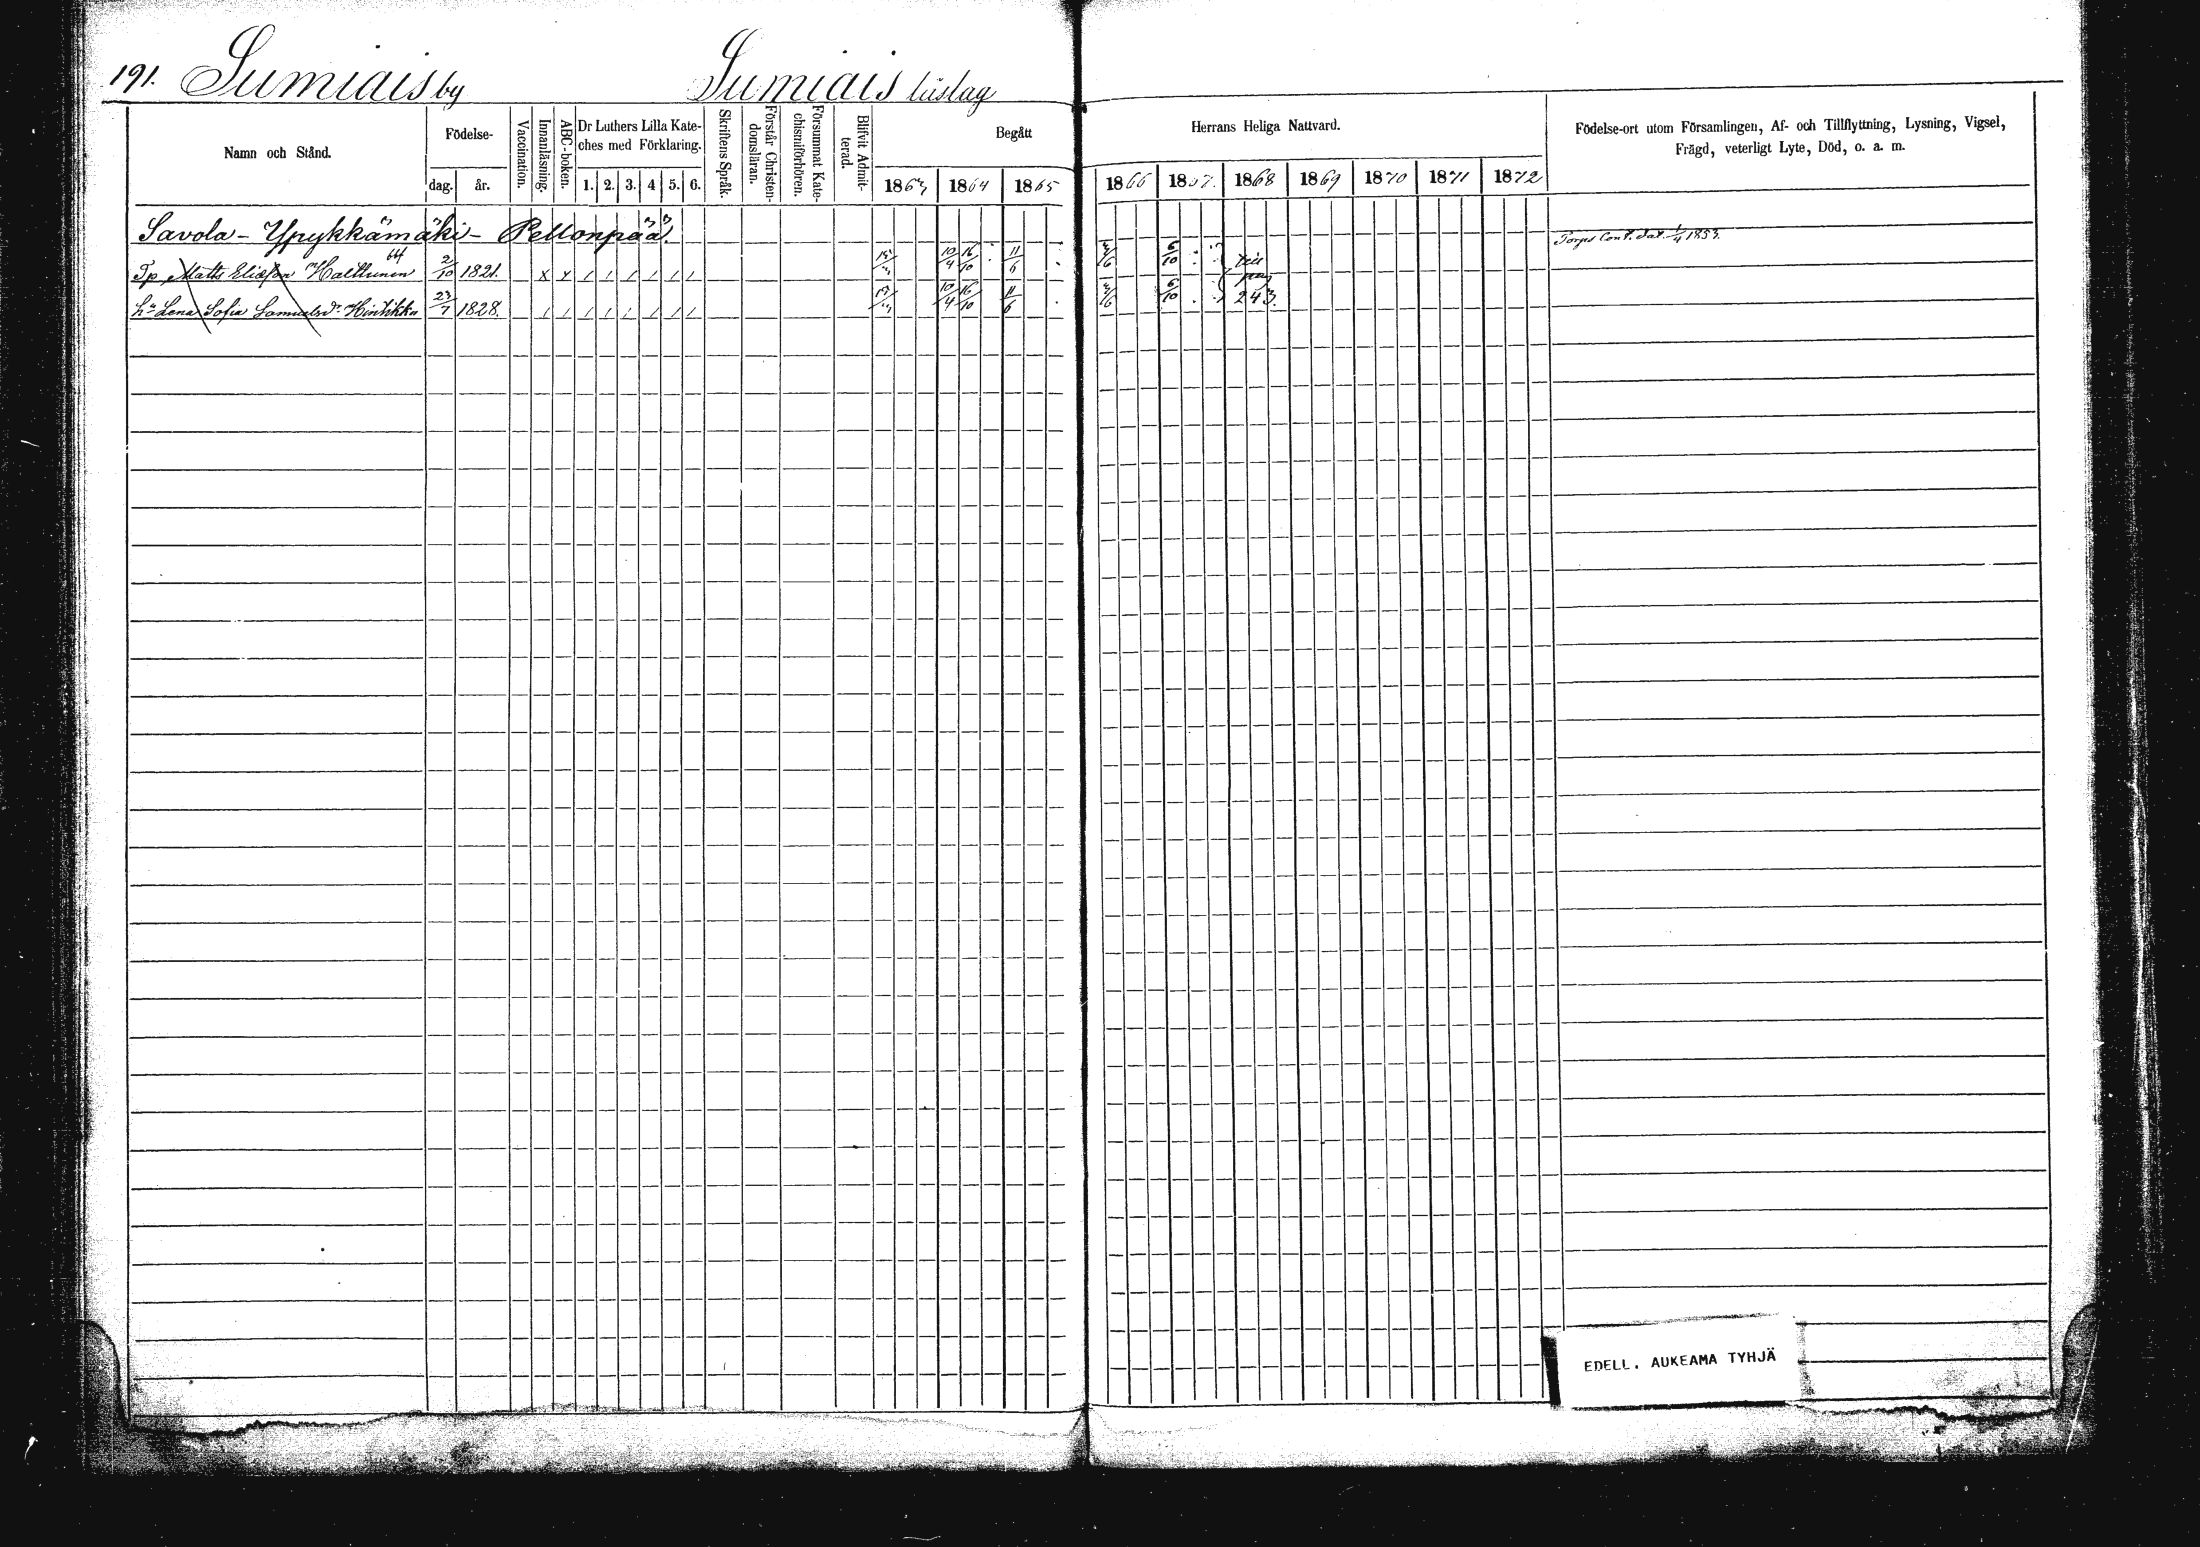 191. Sumiais by Sumiais lüslag
Namn och Stånd.
Födelse-
dag. år.
Vaccination.
Innanläsning.
ABC-boken.
Dr Luthers Lilla Kate-
ches med Förklaring.
1. 2. 3. 4 5. 6.
Skriftens Språk.
Förstår Christen-
domsläran.
Försummat Kate-
chismiförhören.
Blifvit Admit-
terad.
Begått Herrans Heliga Nattvard.
1863 1864 1865 1866 1867. 1868 1869 1870 1871 1872
Födelse-ort utom Församlingen, Af- och Tillflyttning, Lysning, Vigsel,
Frägd, veterligt Lyte, Död, o. a. m.
Savola - Ypykkämäki - Pellonpää. Torps Cont. dat. 1/4 1853.
64
Tp Matts Eliasson Halttunen 2/10 1821. x x / / / / / / 10/4 16/10 11/6 6/10 till
pag
Hu Lena Sofia Samuelsdr Hintikka 23/7 1828. / / / / / / / / 10/4 16/10 11/6 6/10 243.
EDELL. AUKEAMA TYHJÄ